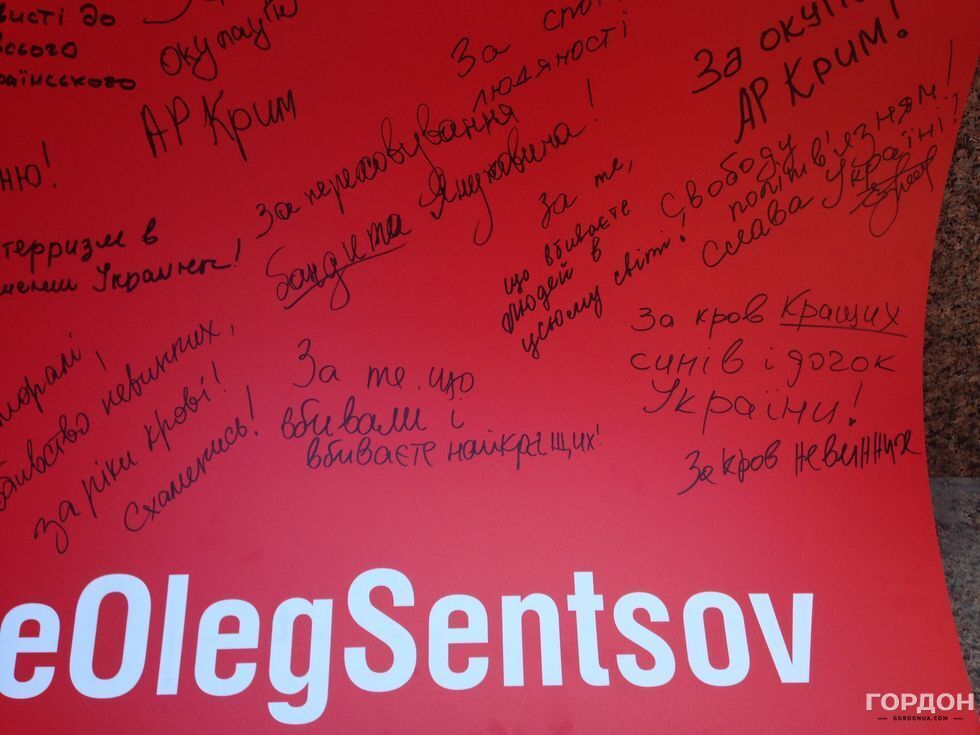 висті до
всього
країнського
окупацію
АР Крим
За спо
людяності
За окупа
АР Крим!
ню!
За переховування
бандита Януковича!
терризм в
Украины!
За те,
що вбиваєте
людей в
усьому світі!
Свободу
політв'язням!
Слава Україні!
моралі,
вбивство невинних,
за ріки крові!
Схаменись!
За те що
вбивали і
вбиваєте найкращих!
За кров кращих
синів і дочок
України!
За кров невинних
eOlegSentsov
ГОРДОН
GORDONUA.COM